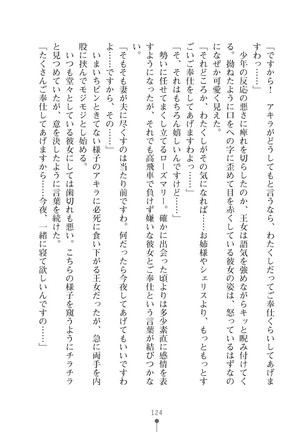 「ですから！　アキラがどうしてもと言うなら、わたくしだってご奉仕してあげま
すわっ……」
　少年の反応の悪さに痺れを切らしたのか、王女は語気を強めながらキッと睨み付けてく
る。拗ねたように口をへの字に歪めて目を赤くしている彼女の姿は、怒っているはずなの
になぜか可愛く見えた。
「それどころか、わたくしがその気になれば……お姉様やシェリスより、もっともっと」
「そ、それはもちろん嬉しいんですけど……」
　勢いに任せてまくし立てるローズマリー。確かに出会った頃よりは多少素直に感情を表
すようになったが、それでも高飛車で負けず嫌いな彼女とご奉仕という言葉が結びつかな
い。
「そもそも妻が夫に尽くすのは当たり前ですわ。何だったら今夜してあげてもいいですわ
よっ……。ですから、その……」
　いまいちピンときていない様子のアキラに必死に食い下がる王女だったが、急に両手を内
股に挟んでモジモジとし始める。
　いつも堂々としている彼女にしては歯切れも悪い。こちらの様子を窺うようにチラチラ
と見つめてきたが、意を決したように言葉を続けた。
「たくさんご奉仕してあげますから……今夜、一緒に寝て欲しいんですの……」
124